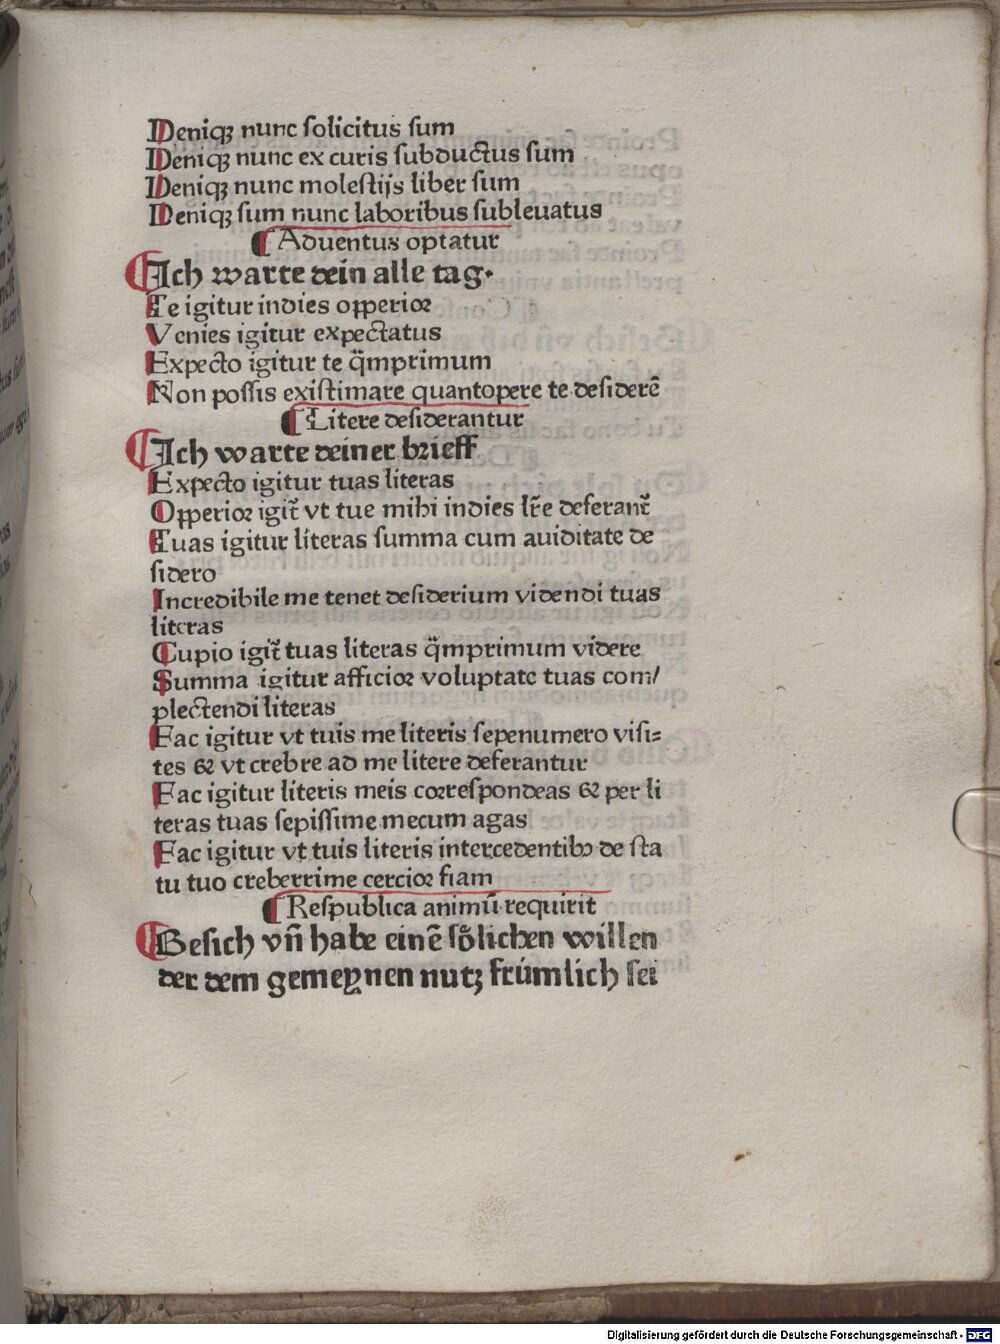 Deniqꝫ nunc ſolicitus ſum
Deniqꝫ nunc ex curis ſubductus ſum
Deniqꝫ nunc moleſtijs liber ſum
Deniqꝫ ſum nunc laboribus ſubleuatus
¶ Aduentus optatur
¶ Ich warte dein alle tag.
Te igitur indies opperioꝛ
Venies igitur expectatus
Expecto igitur te q̃mprimum
Non poſſis exiſtimare quantopere te deſiderē
¶ Litere deſiderantur
¶ Ich warte deiner bꝛieff
Expecto igitur tuas literas
Opperioꝛ igit̃ vt tue mihi indies lr̃e deferant̃
Tuas igitur literas ſumma cum auiditate de
ſidero
Incredibile me tenet deſiderium videndi tuas
literas
Cupio igit̃ tuas literas q̃mprimum videre
Summa igitur afficioꝛ voluptate tuas com/
plectendi literas
Fac igitur vt tuis me literis ſepenumero viſi⸗
tes ⁊ vt crebre ad me litere deferantur
Fac igitur literis meis coꝛreſpondeas ⁊ per li
teras tuas ſepiſſime mecum agas
Fac igitur vt tuis literis intercedentibꝫ de ſta
tu tuo creberrime cercioꝛ fiam
¶ Reſpublica animū requirit
¶ Beſich vñ habe einē ſoͤlichen willen
der dem gemeynen nutꝫ frúmlich ſei
Digitalisierung gefördert durch die Deutsche Forschungsgemeinschaft - DFG